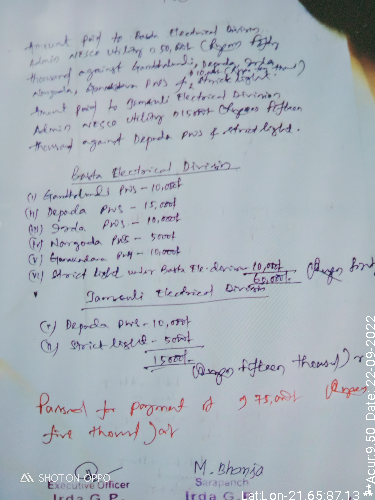 Amount Paid to Basta Electrical Division
Admn NESCO Utility @ 50,000/- (Rupees Fifty
thousand against Gandhibandi, Depada, Irda
Nangada, PWS & Strict light.
Amount Paid to Jamsuli Electrical Division
Admn NESCO Utility @ 15000/- (Rupees Fifteen
thousand against Depada PWS & Strict light.
Basta Electrical Division
(i) PWS - 10,000/-
(ii) Depada PWS - 15,000/-
(iii) Irda PWS - 10,000/-
(iv) Nangada PWS - 5000/-
(v) PWS - 10,000/-
(vi) Strict light under Basta Ele. division - 10,000/-
60,000/- (Rupees
Jamsuli Electrical Division
(i) Depada PWS - 10,000/-
(ii) Strict light - 5000/-
15000/- (Rupees fifteen thousand)
Passed for payment of @ 75,000/- (Rupees
five thousand) only
Executive Officer
Irda G.P.
M. Bhanja
Sarapanch
Irda G
SHOT ON OPPO
Lat/Lon-21.65:87.13
**Acur:9.50 Date:22-09-2022